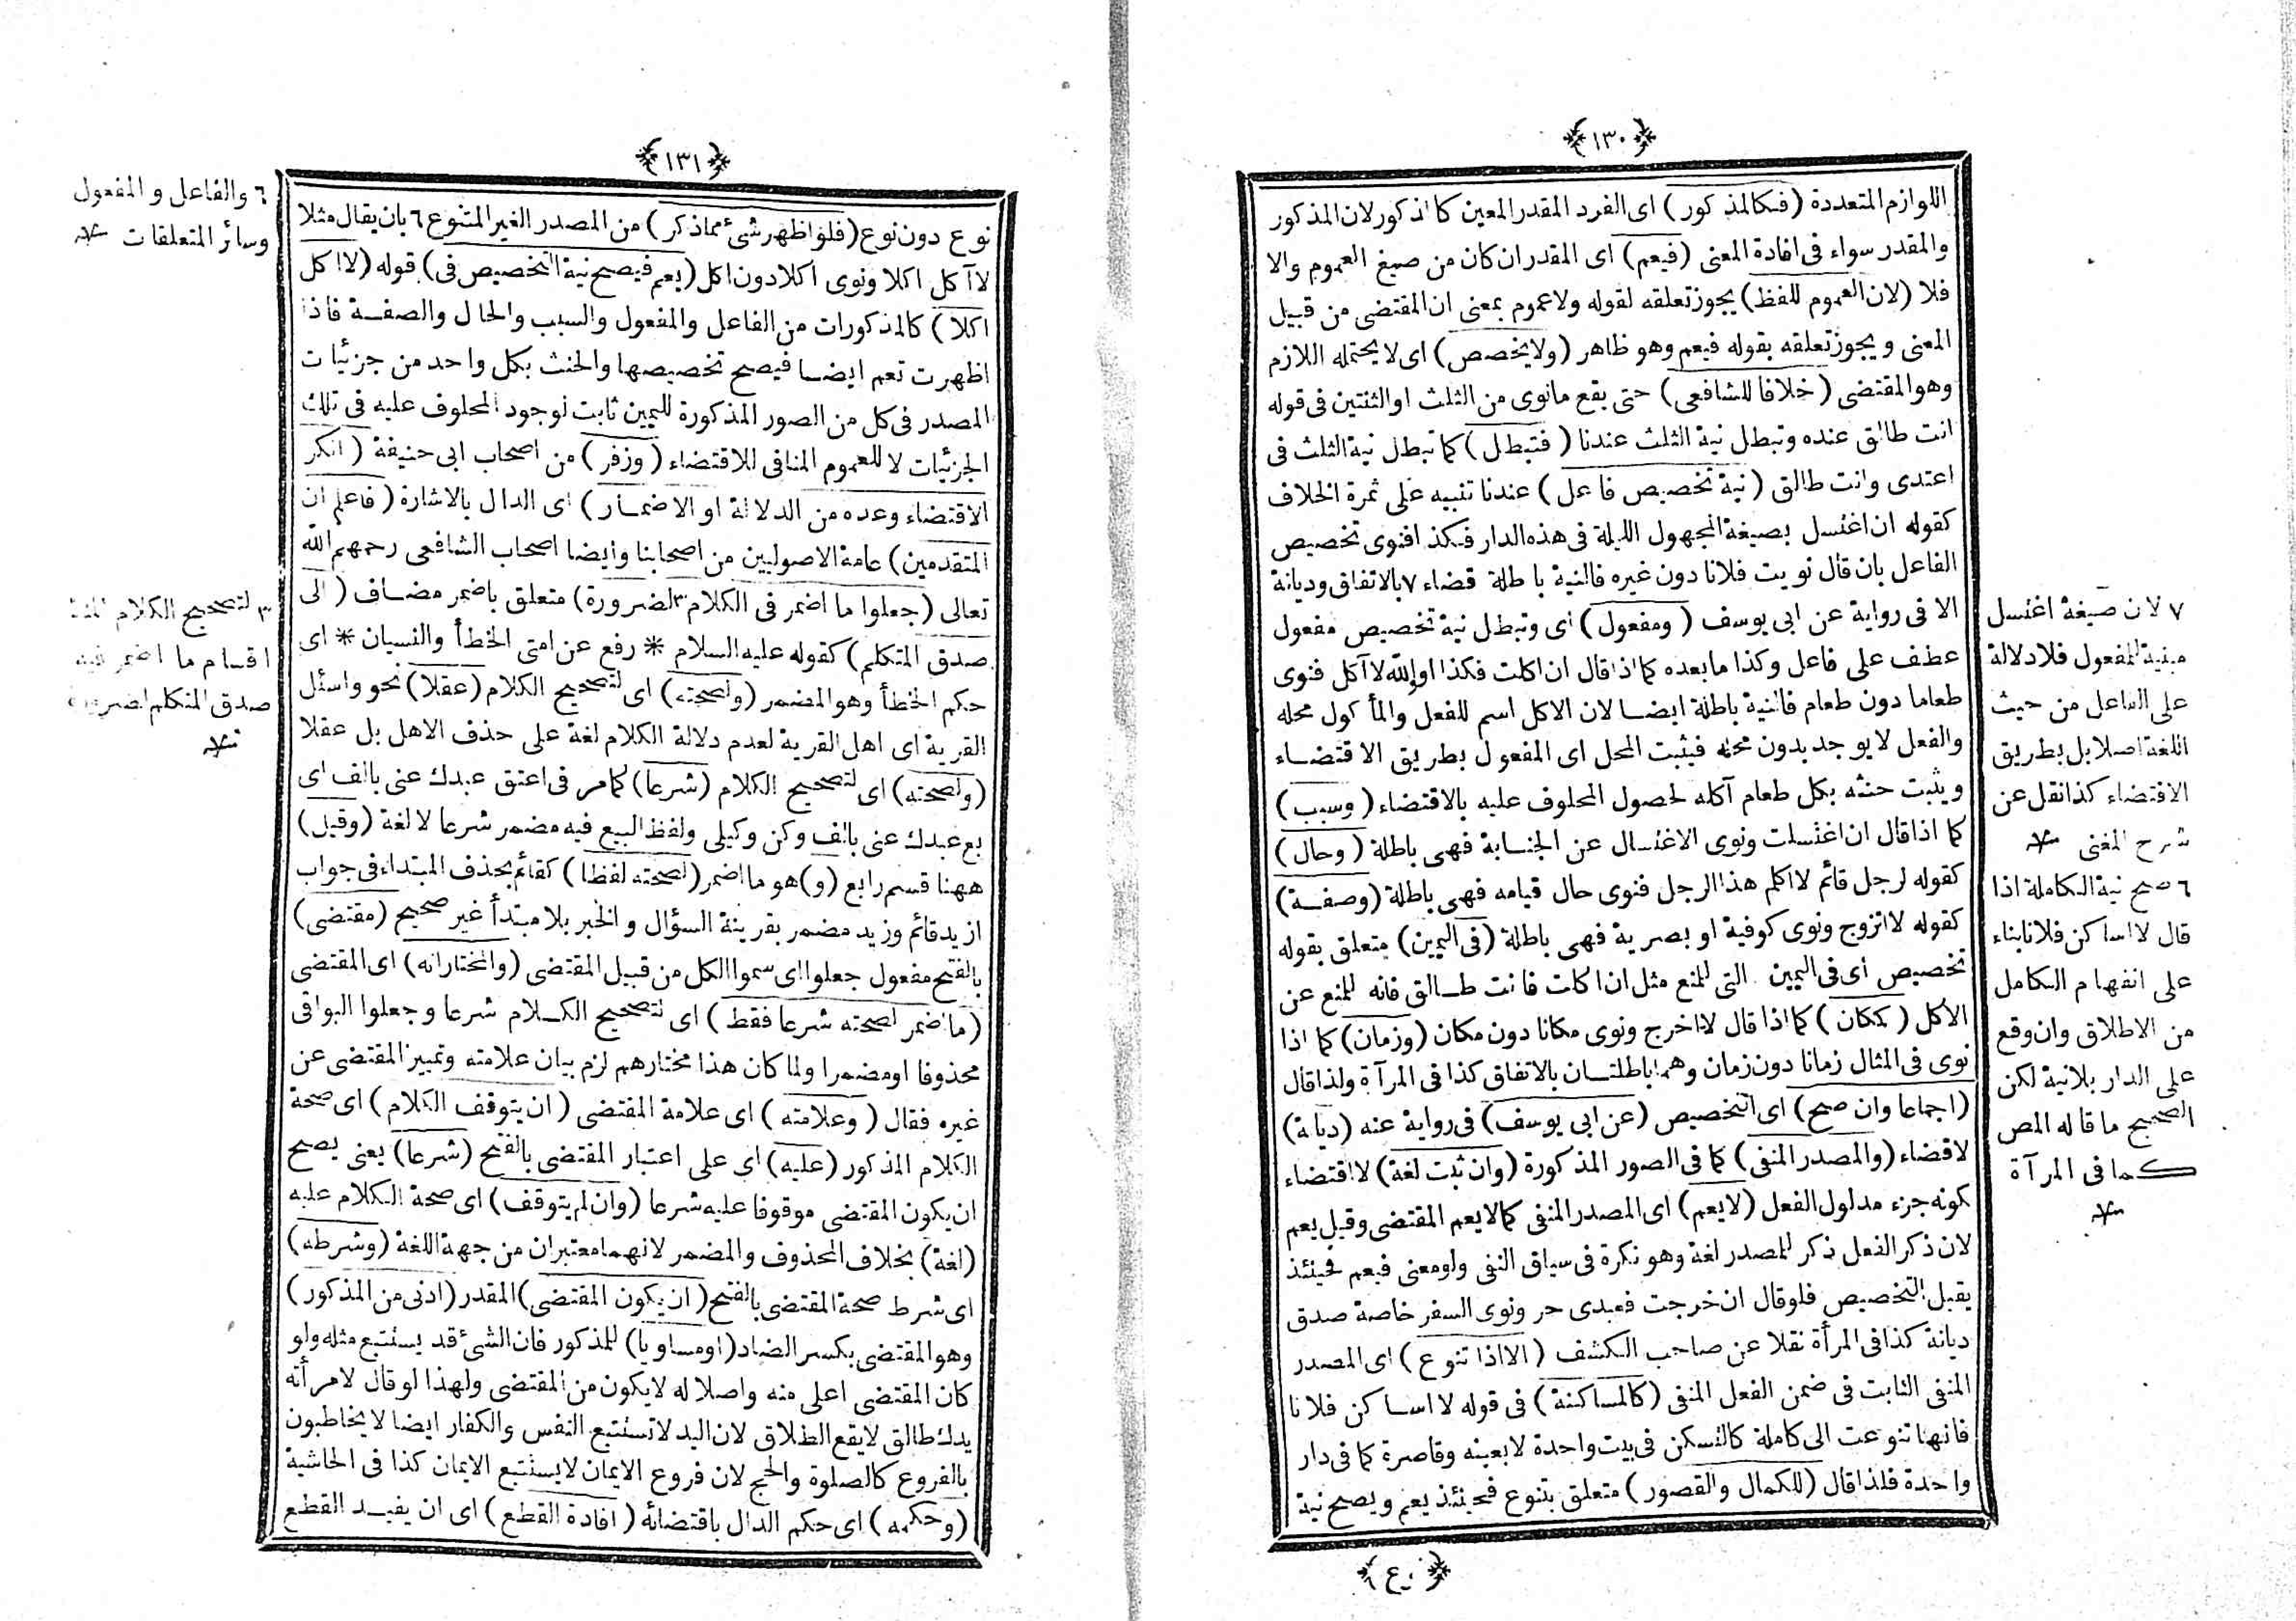 ﴿١٣٠﴾
اللوازم المتعددة (فكالمذكور) اى الفرد المقدر المعين كالمذكور لان المذكور
والمقدر سواء فى افادة المعنى (فيعم) اى المقدر ان كان من صيغ العموم والا
فلا (لان العموم للفظ) يجوز تعلقه لقوله ولا عموم بمعنى ان المقتضى من قبيل
المعنى ويجوز تعلقه بقوله فيعم وهو ظاهر (ولا يخصص) اى لا يحتمله اللازم
وهو المقتضى (خلافا للشافعى) حتى يقع مانوى من الثلث او الثنتين فى قوله
انت طالق عنده وتبطل نية الثلث عندنا (فتبطل) كما تبطل نية الثلث فى
اعتدى وانت طالق (نية تخصيص فاعل) عندنا تنبيه على ثمرة الخلاف
كقوله ان اغتسل بصيغة المجهول الليلة فى هذه الدار فكذا فنوى تخصيص
الفاعل بان قال نويت فلانا دون غيره فالنية باطلة قضاء ٧ بالاتفاق وديانة
الا فى رواية عن ابى يوسف (ومفعول) اى وتبطل نية تخصيص مفعول
عطف على فاعل وكذا ما بعده كما اذا قال ان اكلت فكذا او والله لا آكل فنوى
طعاما دون طعام فالنية باطلة ايضا لان الاكل اسم للفعل والمأكول محله
والفعل لا يوجد بدون محله فيثبت المحل اى المفعول بطريق الاقتضاء
ويثبت حنثه بكل طعام آكله لحصول المحلوف عليه بالاقتضاء (وسبب)
كما اذا قال ان اغتسلت ونوى الاغتسال عن الجنابة فهى باطلة (وحال)
كقوله لرجل قائم لا اكلم هذا الرجل فنوى حال قيامه فهى باطلة (وصفة)
كقوله لا اتزوج ونوى كوفية او بصرية فهى باطلة (فى اليمين) متعلق بقوله
تخصيص اى فى اليمين التى للمنع مثل ان اكلت فانت طالق فانه للمنع عن
الاكل (كمكان) كما اذا قال لا اخرج ونوى مكانا دون مكان (وزمان) كما اذا
نوى فى المثال زمانا دون زمان وهما باطلتان بالاتفاق كذا فى المرآة ولذا قال
(اجماعا وان صح) اى التخصيص (عن ابى يوسف) فى رواية عنه (ديانة)
لا قضاء (والمصدر المنفى) كما فى الصور المذكورة (وان ثبت لغة) لا اقتضاء
كونه جزء مدلول الفعل (لا يعم) اى المصدر المنفى كما لا يعم المقتضى وقيل يعم
لان ذكر الفعل ذكر للمصدر لغة وهو نكرة فى سياق النفى ولو معنى فيعم فحينئذ
يقبل التخصيص فلو قال ان خرجت فعبدى حر ونوى السفر خاصة صدق
ديانة كذا فى المرأة نقلا عن صاحب الكشف (الا اذا تنوع) اى المصدر
المنفى الثابت فى ضمن الفعل المنفى (كالمساكنة) فى قوله لا اساكن فلانا
فانها تنوعت الى كاملة كالتسكن فى بيت واحدة لا بعينه وقاصرة كما فى دار
واحدة فلذا قال (للكمال والقصور) متعلق بتنوع فحينئذ يعم ويصح نية
٧ لان صيغة اغتسل
مبنية للمفعول فلا دلالة
على الفاعل من حيث
اللغة اصلا بل بطريق
الاقتضاء كذا نقل عن
شرح المغنى
٦ صح نية الكاملة اذا
قال لا اساكن فلانا بناء
على انفهام الكامل
من الاطلاق وان وقع
على الدار بلا نية لكن
الصحيح ما قاله المص
كما فى المرآة
﴿١٣١﴾
نوع دون نوع (فلو اظهر شئ مما ذكر) من المصدر الغير المتنوع ٦ بان يقال مثلا
لا آكل اكلا ونوى اكلا دون اكل (يعم فيصح نية التخصيص فى) قوله (لا اكل
اكلا) كالمذكورات من الفاعل والمفعول والسبب والحال والصفة فاذا
اظهرت تعم ايضا فيصح تخصيصها والحنث بكل واحد من جزئيات
المصدر فى كل من الصور المذكورة لليمين ثابت لوجود المحلوف عليه فى تلك
الجزئيات لا للعموم المنافى للاقتضاء (وزفر) من اصحاب ابى حنيفة (انكر
الاقتضاء وعده من الدلالة او الاضمار) اى الدال بالاشارة (فاعلم ان
المتقدمين) عامة الاصوليين من اصحابنا وايضا اصحاب الشافعى رحمهم الله
تعالى (جعلوا ما اضمر فى الكلام ٣ لضرورة) متعلق باضمر مضاف (الى
صدق المتكلم) كقوله عليه السلام * رفع عن امتى الخطأ والنسيان * اى
حكم الخطأ وهو المضمر (ولصحته) اى لتصحيح الكلام (عقلا) نحو واسئل
القرية اى اهل القرية لعدم دلالة الكلام لغة على حذف الاهل بل عقلا
(ولصحته) اى لتصحيح الكلام (شرعا) كما مر فى اعتق عبدك عنى بالف اى
بع عبدك عنى بالف وكن وكيلى ولفظ البيع فيه مضمر شرعا لا لغة (وقيل)
ههنا قسم رابع (و) هو ما اضمر (لصحته لفظا) كقائم بحذف المبتداء فى جواب
ازيد قائم وزيد مضمر بقرينة السؤال والخبر بلا مبتدأ غير صحيح (مقتضى)
بالفتح مفعول جعلوا اى سموا الكل من قبيل المقتضى (والمختار انه) اى المقتضى
(ما اضمر لصحته شرعا فقط) اى لتصحيح الكلام شرعا وجعلوا البواقى
محذوفا او مضمرا ولما كان هذا مختارهم لزم بيان علامته وتمييز المقتضى عن
غيره فقال (وعلامته) اى علامة المقتضى (ان يتوقف الكلام) اى صحة
الكلام المذكور (عليه) اى على اعتبار المقتضى بالفتح (شرعا) يعنى يصح
ان يكون المقتضى موقوفا عليه شرعا (وان لم يتوقف) اى صحة الكلام عليه
(لغة) بخلاف المحذوف والمضمر لانهما معتبران من جهة اللغة (وشرطه)
اى شرط صحة المقتضى بالفتح (ان يكون المقتضى) المقدر (ادنى من المذكور)
وهو المقتضى بكسر الضاد (او مساويا) للمذكور فان الشئ قد يستتبع مثله ولو
كان المقتضى اعلى منه واصلا له لا يكون من المقتضى ولهذا لو قال لامرأته
يدك طالق لا يقع الطلاق لان اليد لا تستتبع النفس والكفار ايضا لا يخاطبون
بالفروع كالصلوة والحج لان فروع الايمان لا يستتبع الايمان كذا فى الحاشية
(وحكمه) اى حكم الدال باقتضائه (افادة القطع) اى ان يفيد القطع
٦ والفاعل والمفعول
وسائر المتعلقات
٣ لتصحيح الكلام
اقسام ما اضمر فيه
صدق المتكلم لضرورة